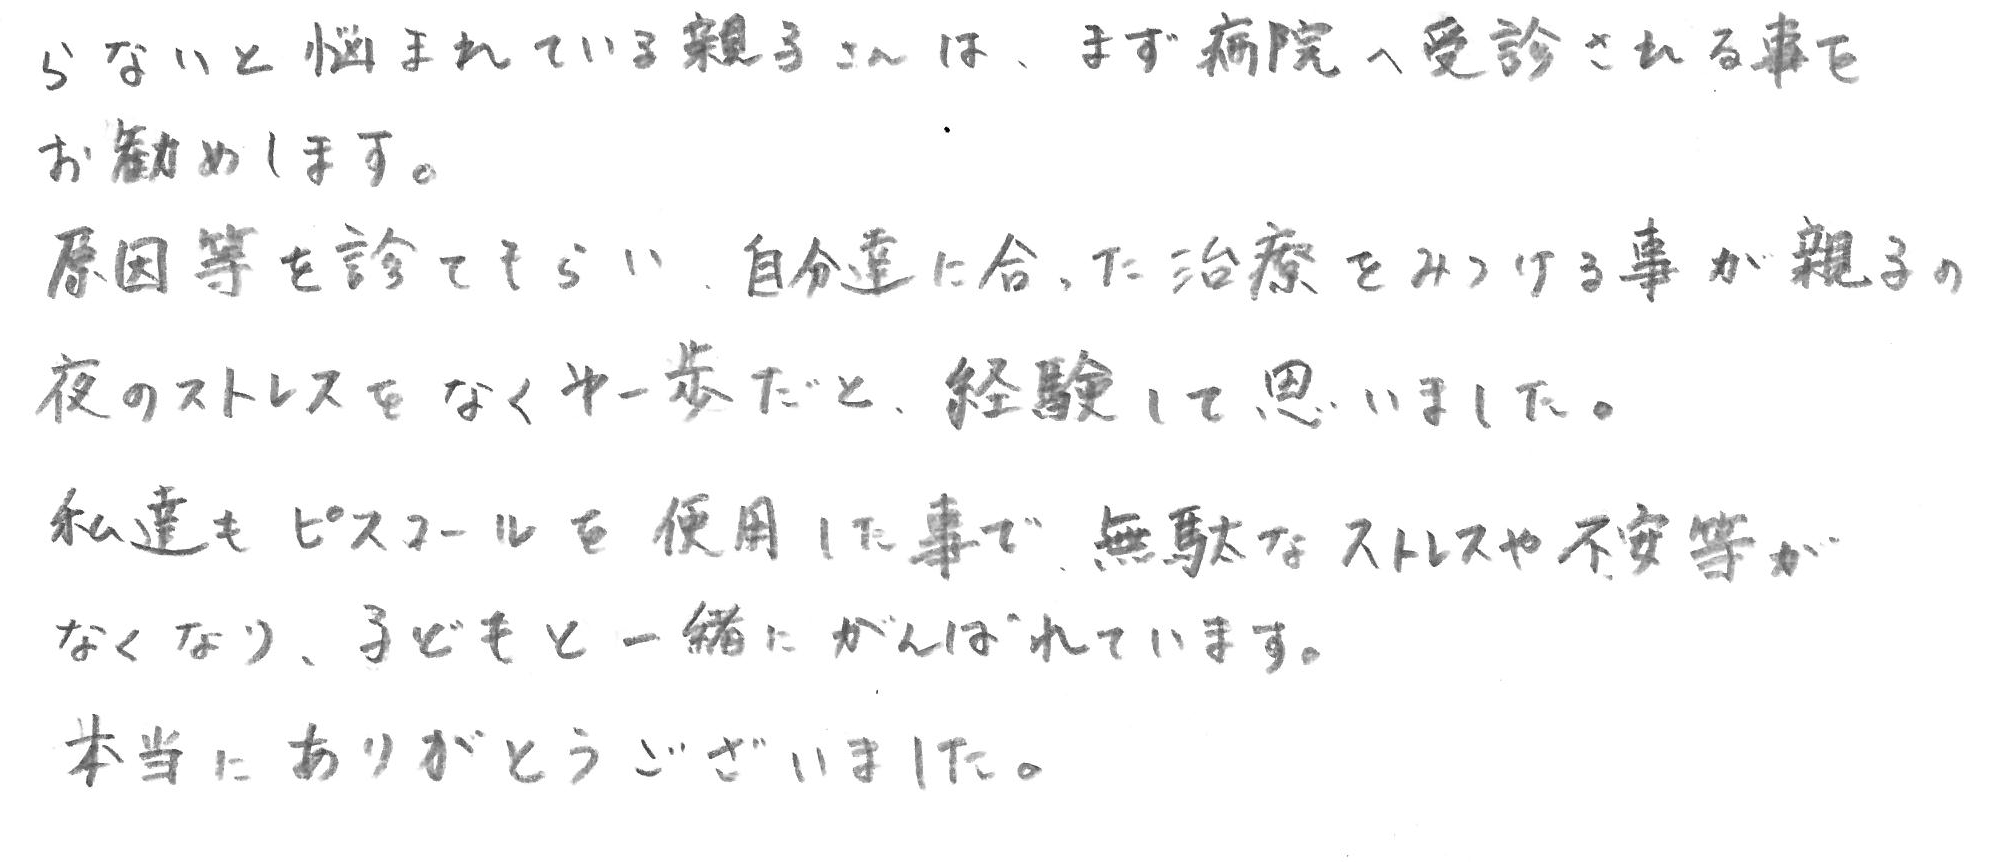 らないと悩まれている親子さんは、まず病院へ受診される事を
お勧めします。
原因等を診てもらい、自分達に合った治療をみつける事が親子の
夜のストレスをなくす一歩だと、経験して思いました。
私達もピスコールを使用した事で、無駄なストレスや不安等が
なくなり、子どもと一緒にがんばれています。
本当にありがとうございました。